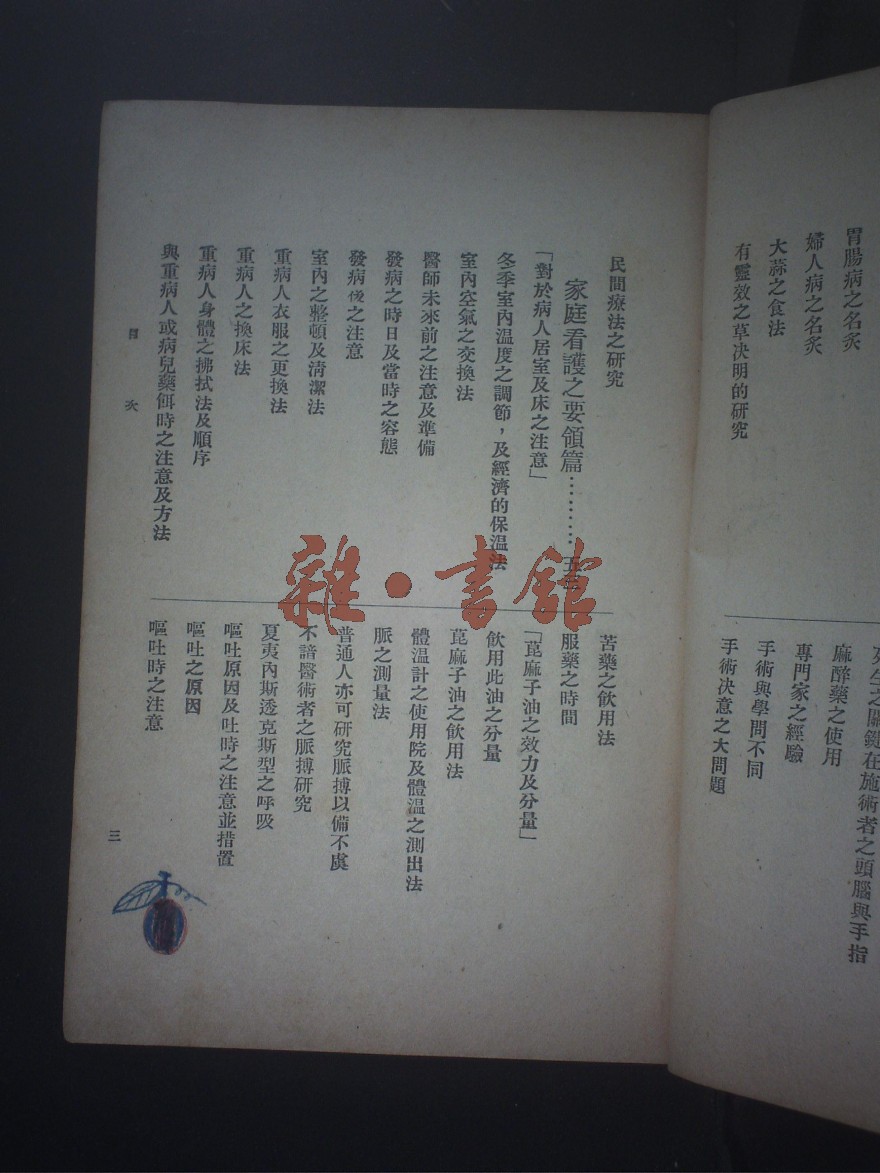 胃腸病之名灸
婦人病之名灸
大蒜之食法
有靈效之草決明的研究
之關鍵在施術者之頭腦與手指
麻醉藥之使用
專門家之經驗
手術與學問不同
手術決意之大問題
民間療法之研究
家庭看護之要領篇………… 五
「對於病人居室及床之注意」
冬季室內温度之調節，及經濟的保温法
室內空氣之交換法
醫師未來前之注意及準備
發病之時日及當時之容態
發病後之注意
室內之整頓及清潔法
重病人衣服之更換法
重病人之換床法
重病人身體之拂拭法及順序
與重病人或病兒藥餌時之注意及方法
苦藥之飲用法
服藥之時間
「萞麻子油之效力及分量」
飲用此油之分量
萞麻子油之飲用法
體温計之使用院及體温之測出法
脈之測量法
普通人亦可研究脈搏以備不虞
不諳醫術者之脈搏研究
夏夷內斯透克斯型之呼吸
嘔吐原因及吐時之注意並措置
嘔吐之原因
嘔吐時之注意
目次
三
雜·書館